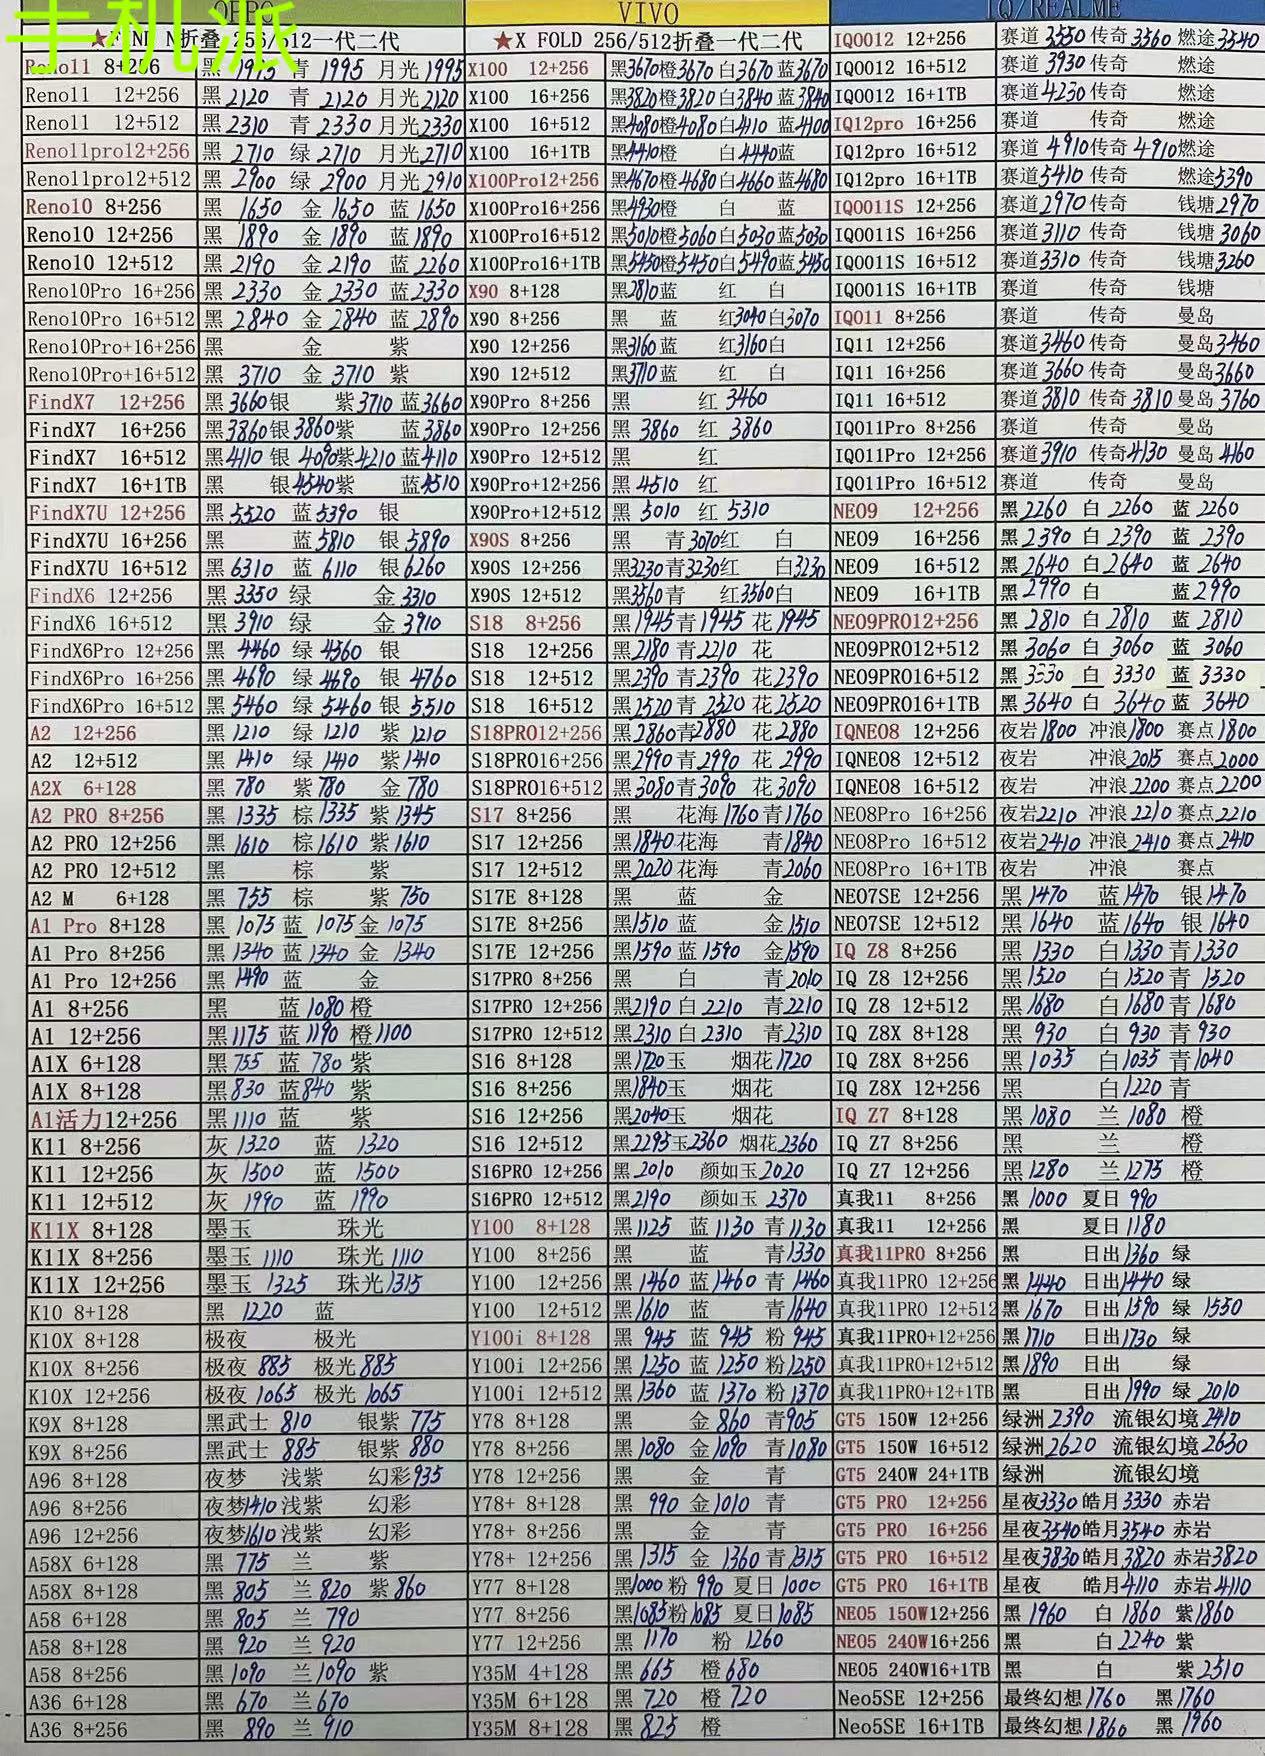 手机派
OPPO VIVO IQ/REALME
256/512一代二代 ★X FOLD 256/512折叠一代二代 IQOO12 12+256 赛道 3550 传奇 3560 燃途 3540
Reno11 8+256 黑 1995 青 1995 月光 1995 X100 12+256 黑3670橙3670白3670蓝3670 IQOO12 16+512 赛道 3930 传奇 燃途
Reno11 12+256 黑 2120 青 2120 月光 2120 X100 16+256 黑3820橙3820白3840蓝3840 IQOO12 16+1TB 赛道 4230 传奇 燃途
Reno11 12+512 黑 2310 青 2330 月光 2330 X100 16+512 黑4080橙4080白4110 蓝4100 IQ12pro 16+256 赛道 传奇 燃途
Reno11pro12+256 黑 2710 绿 2710 月光 2710 X100 16+1TB 黑4410橙 白4440蓝 IQ12pro 16+512 赛道 4910传奇 4910燃途
Reno11pro12+512 黑 2900 绿 2900 月光 2910 X100Pro12+256 黑4670橙4680白4660蓝4680 IQ12pro 16+1TB 赛道5410 传奇 燃途5390
Reno10 8+256 黑 1650 金 1650 蓝 1650 X100Pro16+256 黑4930橙 白 蓝 IQOO11S 12+256 赛道2970传奇 钱塘2970
Reno10 12+256 黑 1890 金 1890 蓝1890 X100Pro16+512 黑5010橙5060白5030蓝5030 IQOO11S 16+256 赛道3110 传奇 钱塘3060
Reno10 12+512 黑 2190 金 2190 蓝 2260 X100Pro16+1TB 黑5450橙5450白5490蓝5450 IQOO11S 16+512 赛道3310 传奇 钱塘3260
Reno10Pro 16+256 黑 2330 金 2330 蓝 2330 X90 8+128 黑2810蓝 红 白 IQOO11S 16+1TB 赛道 传奇 钱塘
Reno10Pro 16+512 黑 2840 金 2840 蓝 2890 X90 8+256 黑 蓝 红3040白3070 IQO11 8+256 赛道 传奇 曼岛
Reno10Pro+16+256 黑 金 紫 X90 12+256 黑3160蓝 红3160白 IQ11 12+256 赛道3460传奇 曼岛3460
Reno10Pro+16+512 黑 3710 金 3710 紫 X90 12+512 黑3710蓝 红 白 IQ11 16+256 赛道 3660 传奇 曼岛3660
FindX7 12+256 黑3660银 紫3710 蓝3660 X90Pro 8+256 黑 红 3460 IQ11 16+512 赛道3810 传奇 3810 曼岛 3760
FindX7 16+256 黑3860银3860紫 蓝3860 X90Pro 12+256 黑 3860 红 3860 IQO11Pro 8+256 赛道 传奇 曼岛
FindX7 16+512 黑4110 银 4090紫4210 蓝4110 X90Pro 12+512 黑 红 IQO11Pro 12+256 赛道3910 传奇4130 曼岛 4160
FindX7 16+1TB 黑 银4540紫 蓝4510 X90Pro+12+256 黑 4510 红 IQO11Pro 16+512 赛道 传奇 曼岛
FindX7U 12+256 黑 5520 蓝 5390 银 X90Pro+12+512 黑 5010 红 5310 NEO9 12+256 黑 2260 白 2260 蓝 2260
FindX7U 16+256 黑 蓝 5810 银 5890 X90S 8+256 黑 青3070红 白 NEO9 16+256 黑 2390 白 2390 蓝 2390
FindX7U 16+512 黑 6310 蓝 6110 银6260 X90S 12+256 黑3230青3230红 白3230 NEO9 16+512 黑 2640 白 2640 蓝 2640
FindX6 12+256 黑 3350 绿 金 3310 X90S 12+512 黑3560青 红3560白 NEO9 16+1TB 黑 2990 白 蓝2990
FindX6 16+512 黑 3910 绿 金 3910 S18 8+256 黑1945青1945 花 1945 NEO9PRO12+256 黑 2810 白 2810 蓝 2810
FindX6Pro 12+256 黑 4460 绿 4360 银 S18 12+256 黑2180青2210 花 NEO9PRO12+512 黑 3060 白 3060 蓝 3060
FindX6Pro 16+256 黑 4690 绿 4690 银 4760 S18 12+512 黑2390青2390 花2390 NEO9PRO16+512 黑 3330 白 3330 蓝 3330
FindX6Pro 16+512 黑 5460 绿 5460 银 5510 S18 16+512 黑2520青 2520 花2520 NEO9PRO16+1TB 黑 3640 白 3640 蓝 3640
A2 12+256 黑 1210 绿 1210 紫 1210 S18PRO12+256 黑2860青2880 花 2880 IQNEO8 12+256 夜岩1800 冲浪1800 赛点1800
A2 12+512 黑 1410 绿 1410 紫1410 S18PRO16+256 黑2990青2990 花 2990 IQNEO8 12+512 夜岩 冲浪2015 赛点2000
A2X 6+128 黑 780 紫780 金 780 S18PRO16+512 黑3080青3090 花 3090 IQNEO8 16+512 夜岩 冲浪2200 赛点2200
A2 PRO 8+256 黑 1335 棕 1335 紫 1345 S17 8+256 黑 花海 1760 青1760 NEO8Pro 16+256 夜岩2210 冲浪 2210 赛点2210
A2 PRO 12+256 黑 1610 棕1610 紫1610 S17 12+256 黑1840花海 青1840 NEO8Pro 16+512 夜岩2410 冲浪 2410 赛点 2410
A2 PRO 12+512 黑 棕 紫 S17 12+512 黑2020花海 青2060 NEO8Pro 16+1TB 夜岩 冲浪 赛点
A2 M 6+128 黑 755 棕 紫 750 S17E 8+128 黑 蓝 金 NEO7SE 12+256 黑 1470 蓝1470 银1470
A1 Pro 8+128 黑 1075 蓝 1075 金 1075 S17E 8+256 黑1510 蓝 金1510 NEO7SE 12+512 黑 1640 蓝1640 银 1640
A1 Pro 8+256 黑 1340 蓝1340 金 1340 S17E 12+256 黑1590 蓝 1590 金1590 IQ Z8 8+256 黑 1330 白1330青1330
A1 Pro 12+256 黑 1490 蓝 金 S17PRO 8+256 黑 白 青2010 IQ Z8 12+256 黑 1520 白1520青 1520
A1 8+256 黑 蓝1080橙 S17PRO 12+256 黑2190 白 2210 青2210 IQ Z8 12+512 黑 1680 白1680青1680
A1 12+256 黑1175 蓝 1190 橙1100 S17PRO 12+512 黑2310 白 2310 青2310 IQ Z8X 8+128 黑 930 白 930 青 930
A1X 6+128 黑 755 蓝 780 紫 S16 8+128 黑1720玉 烟花1720 IQ Z8X 8+256 黑 1035 白1035 青1040
A1X 8+128 黑830 蓝840 紫 S16 8+256 黑1840玉 烟花 IQ Z8X 12+256 黑 白1220青
A1活力12+256 黑1110 蓝 紫 S16 12+256 黑2040玉 烟花 IQ Z7 8+128 黑 1080 兰 1080 橙
K11 8+256 灰 1320 蓝 1320 S16 12+512 黑2295玉2360 烟花2360 IQ Z7 8+256 黑 兰 橙
K11 12+256 灰 1500 蓝 1500 S16PRO 12+256 黑 2010 颜如玉2020 IQ Z7 12+256 黑1280 兰1275 橙
K11 12+512 灰 1990 蓝 1990 S16PRO 12+512 黑2190 颜如玉 2370 真我11 8+256 黑 1000 夏日 990
K11X 8+128 墨玉 珠光 Y100 8+128 黑1125 蓝 1130 青1130 真我11 12+256 黑 夏日1180
K11X 8+256 墨玉 1110 珠光1110 Y100 8+256 黑 蓝 青1330 真我11PRO 8+256 黑 日出1360 绿
K11X 12+256 墨玉 1325 珠光1315 Y100 12+256 黑1460 蓝1460 青 1460 真我11PRO 12+256 黑1440 日出1440 绿
K10 8+128 黑 1220 蓝 Y100 12+512 黑1610 蓝 青1640 真我11PRO 12+512 黑 1670 日出1590 绿 1550
K10X 8+128 极夜 极光 Y100i 8+128 黑 945 蓝 945 粉 945 真我11PRO+12+256 黑1710 日出1730 绿
K10X 8+256 极夜 885 极光885 Y100i 12+256 黑1250 蓝1250 粉1250 真我11PRO+12+512 黑1890 日出 绿
K10X 12+256 极夜 1065 极光 1065 Y100i 12+512 黑1360 蓝 1370 粉1370 真我11PRO+12+1TB 黑 日出1990 绿 2010
K9X 8+128 黑武士 810 银紫 775 Y78 8+128 黑 金 860 青905 GT5 150W 12+256 绿洲 2390 流银幻境2410
K9X 8+256 黑武士 885 银紫 880 Y78 8+256 黑1080 金1090 青1080 GT5 150W 16+512 绿洲2620 流银幻境2630
A96 8+128 夜梦 浅紫 幻彩935 Y78 12+256 黑 金 青 GT5 240W 24+1TB 绿洲 流银幻境
A96 8+256 夜梦1410浅紫 幻彩 Y78+ 8+128 黑 990 金1010 青 GT5 PRO 12+256 星夜3330皓月3330 赤岩
A96 12+256 夜梦1610浅紫 幻彩 Y78+ 8+256 黑 金 青 GT5 PRO 16+256 星夜3540皓月3540 赤岩
A58X 6+128 黑 775 兰 紫 Y78+ 12+256 黑 1315 金 1360青1315 GT5 PRO 16+512 星夜3830皓月3820 赤岩3820
A58X 8+128 黑 805 兰820 紫 860 Y77 8+128 黑1000 粉 990 夏日 1000 GT5 PRO 16+1TB 星夜 皓月4110 赤岩4110
A58 6+128 黑 805 兰 790 Y77 8+256 黑1085粉1085 夏日1085 NEO5 150W12+256 黑 1960 白 1860 紫1860
A58 8+128 黑 920 兰 920 Y77 12+256 黑 1170 粉 1260 NEO5 240W16+256 黑 白2240 紫
A58 8+256 黑1090 兰1090 紫 Y35M 4+128 黑 665 橙 680 NEO5 240W16+1TB 黑 白 紫2510
A36 6+128 黑 670 兰670 Y35M 6+128 黑 720 橙 720 Neo5SE 12+256 最终幻想1760 黑1760
A36 8+256 黑 890 兰 910 Y35M 8+128 黑 825 橙 Neo5SE 16+1TB 最终幻想1860 黑 1960